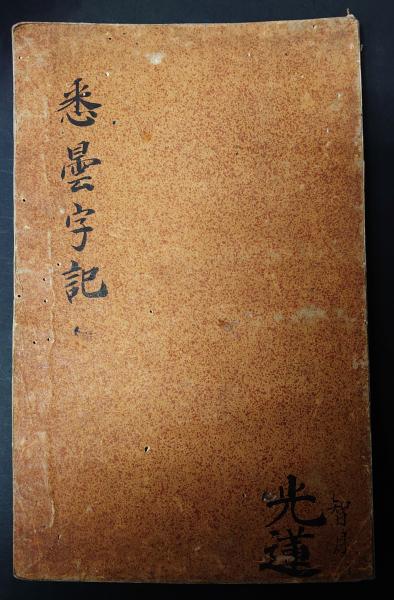 悉曇字記
智月
光蓮